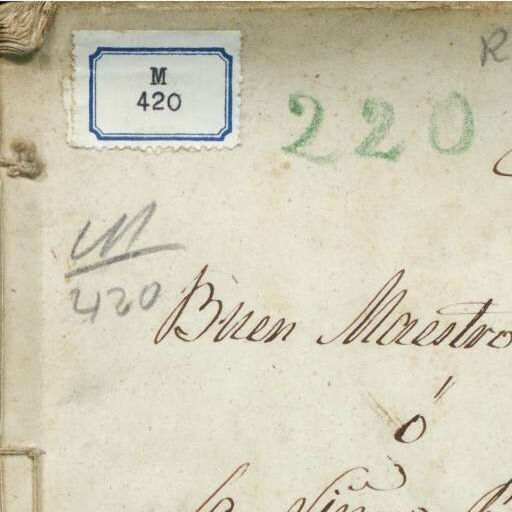 M
420
R
220
M
420
Buen Maestro
ó
la